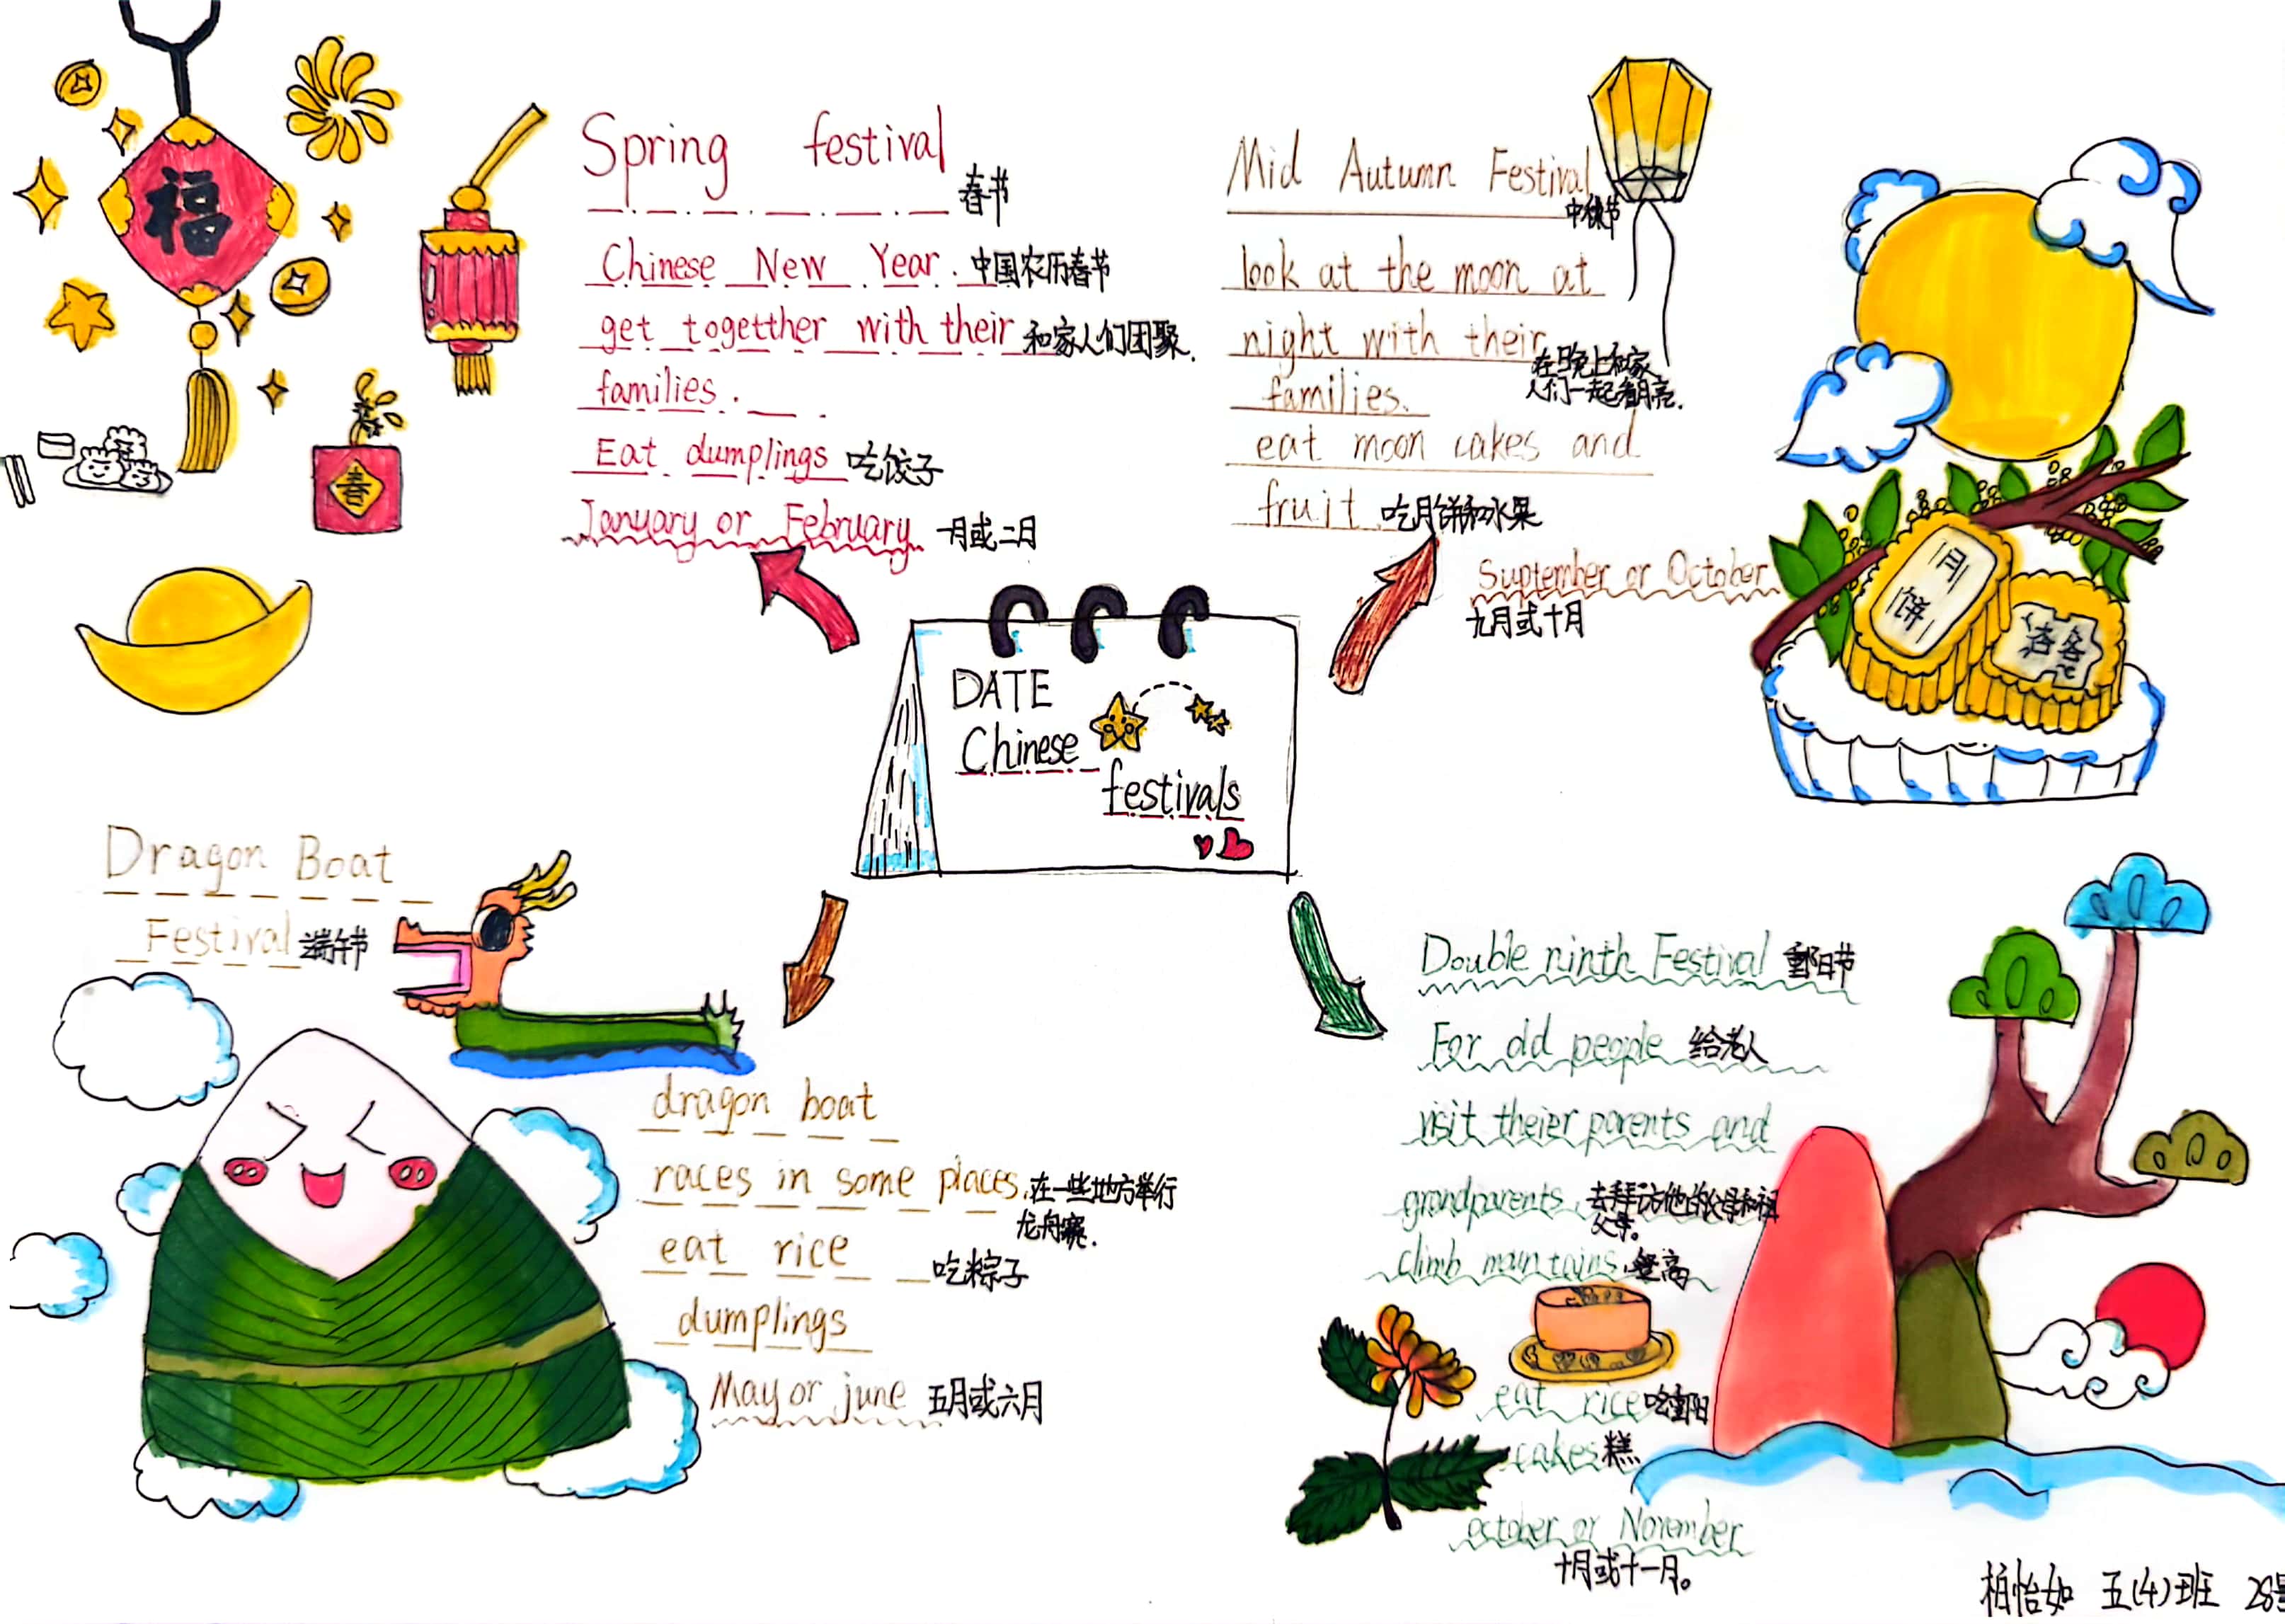 福
春
Spring festival
春节
Chinese New Year. 中国农历春节
get togetther with their 和家人们团聚.
families.
Eat dumplings 吃饺子
January or February 一月或二月
Mid Autumn Festival
中秋节
look at the moon at
night with their
在晚上和家
人们一起看月亮.
families.
eat moon cakes and
fruit. 吃月饼和水果
Suptember or October
九月或十月
月饼
DATE
Chinese
festivals
Dragon Boat
Festival 端午节
dragon boat
races in some places. 在一些地方举行
龙舟赛.
eat rice 吃粽子
dumplings
May or june 五月或六月
Double ninth Festival 重阳节
For old people 给老人
visit theier parents and
grandparents. 去拜访他的父母和祖
父母。
climb mountains. 登高
eat rice 吃重阳
cakes 糕
october or November
十月或十一月。
柏怡如 五(4)班 28号